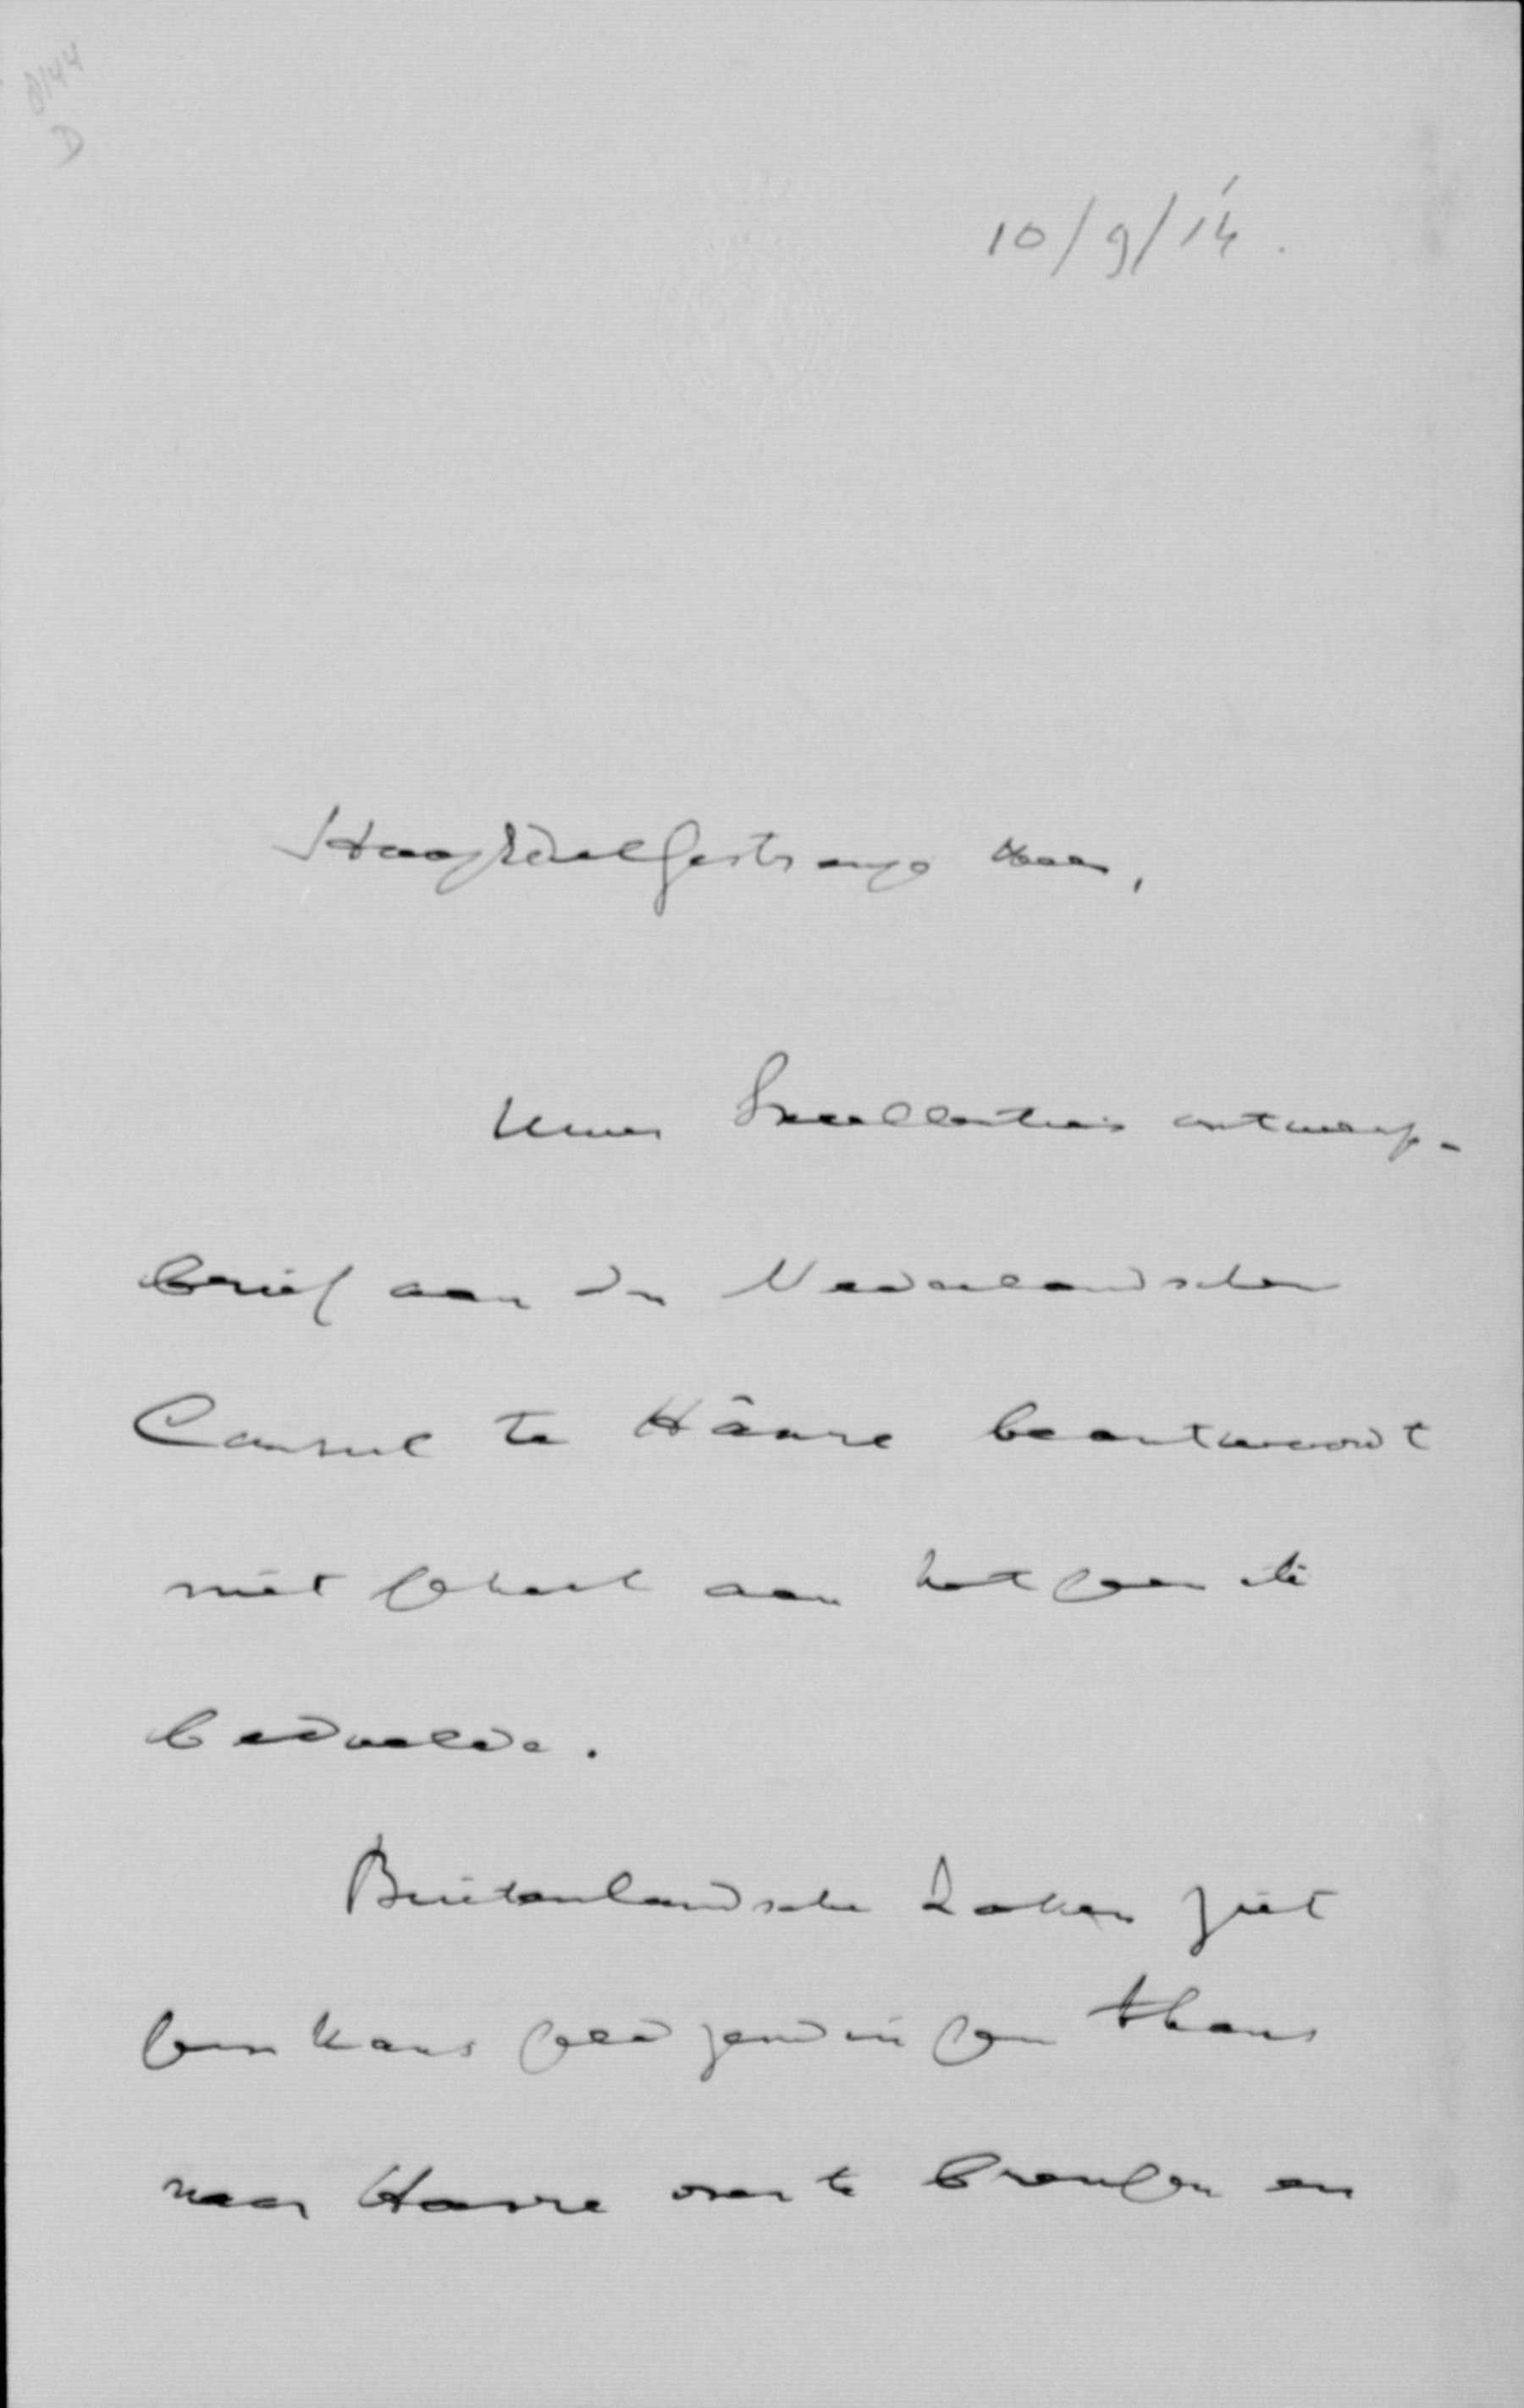 0144
D
10/9/14.
HoogEdelGestrenge Heer,
Uwer Excellentie's ontwerp-
brief aan den Nederlandschen
Consul te Hâvre beantwoordt
niet geheel aan hetgeen ik
bedoelde.
Buitenlandsche Zaken ziet
geen kans geldzendingen thans
naar Havre over te brengen en